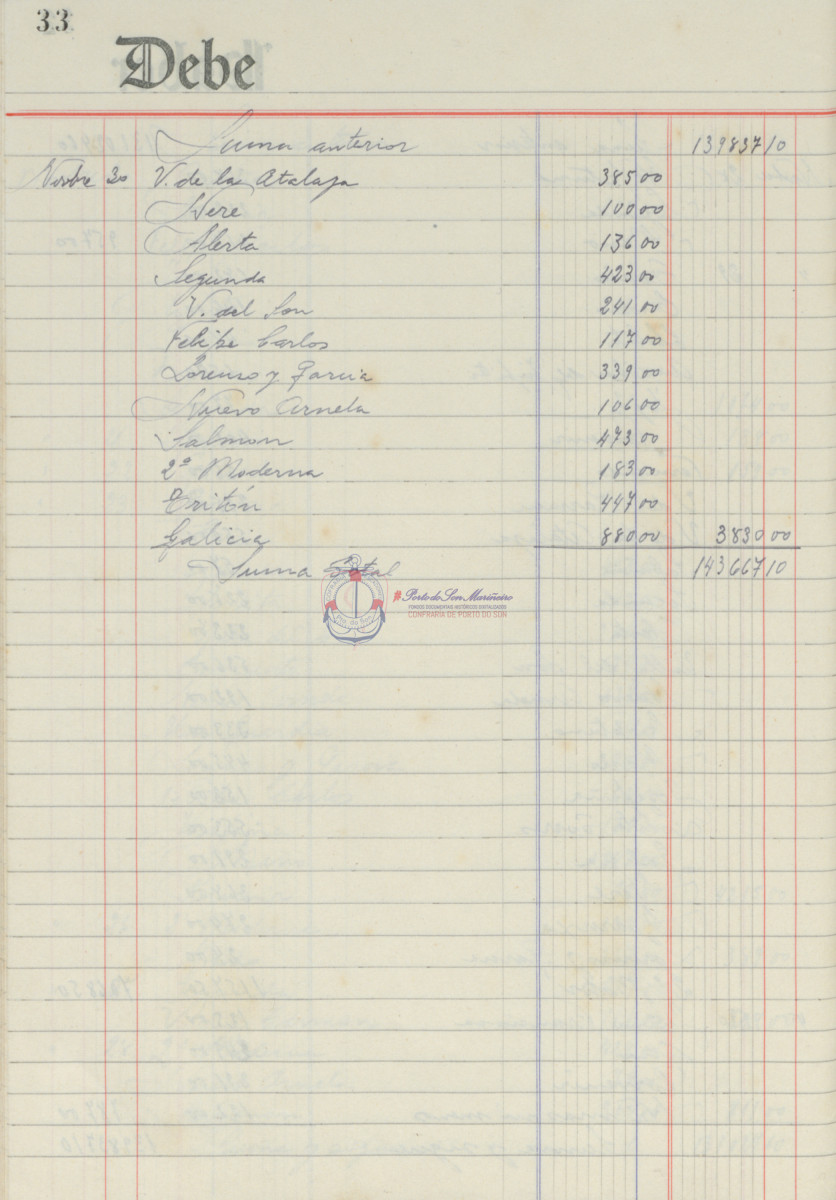 33
Debe
Suma anterior 139837 10
Novbre 30 V. de la Atalaya 385 00
Nere 100 00
Alerta 136 00
Segunda 423 00
V. del Son 241 00
Felipe Carlos 117 00
Lorenzo y Garcia 339 00
Nuevo Arnela 106 00
Salmon 473 00
2ª Moderna 183 00
Tritón 447 00
Galicia 880 00 3830 00
Suma Total 143667 10
#PortodoSonMariñeiro
FONDOS DOCUMENTAIS HISTÓRICOS DIXITALIZADOS
CONFRARÍA DE PORTO DO SON